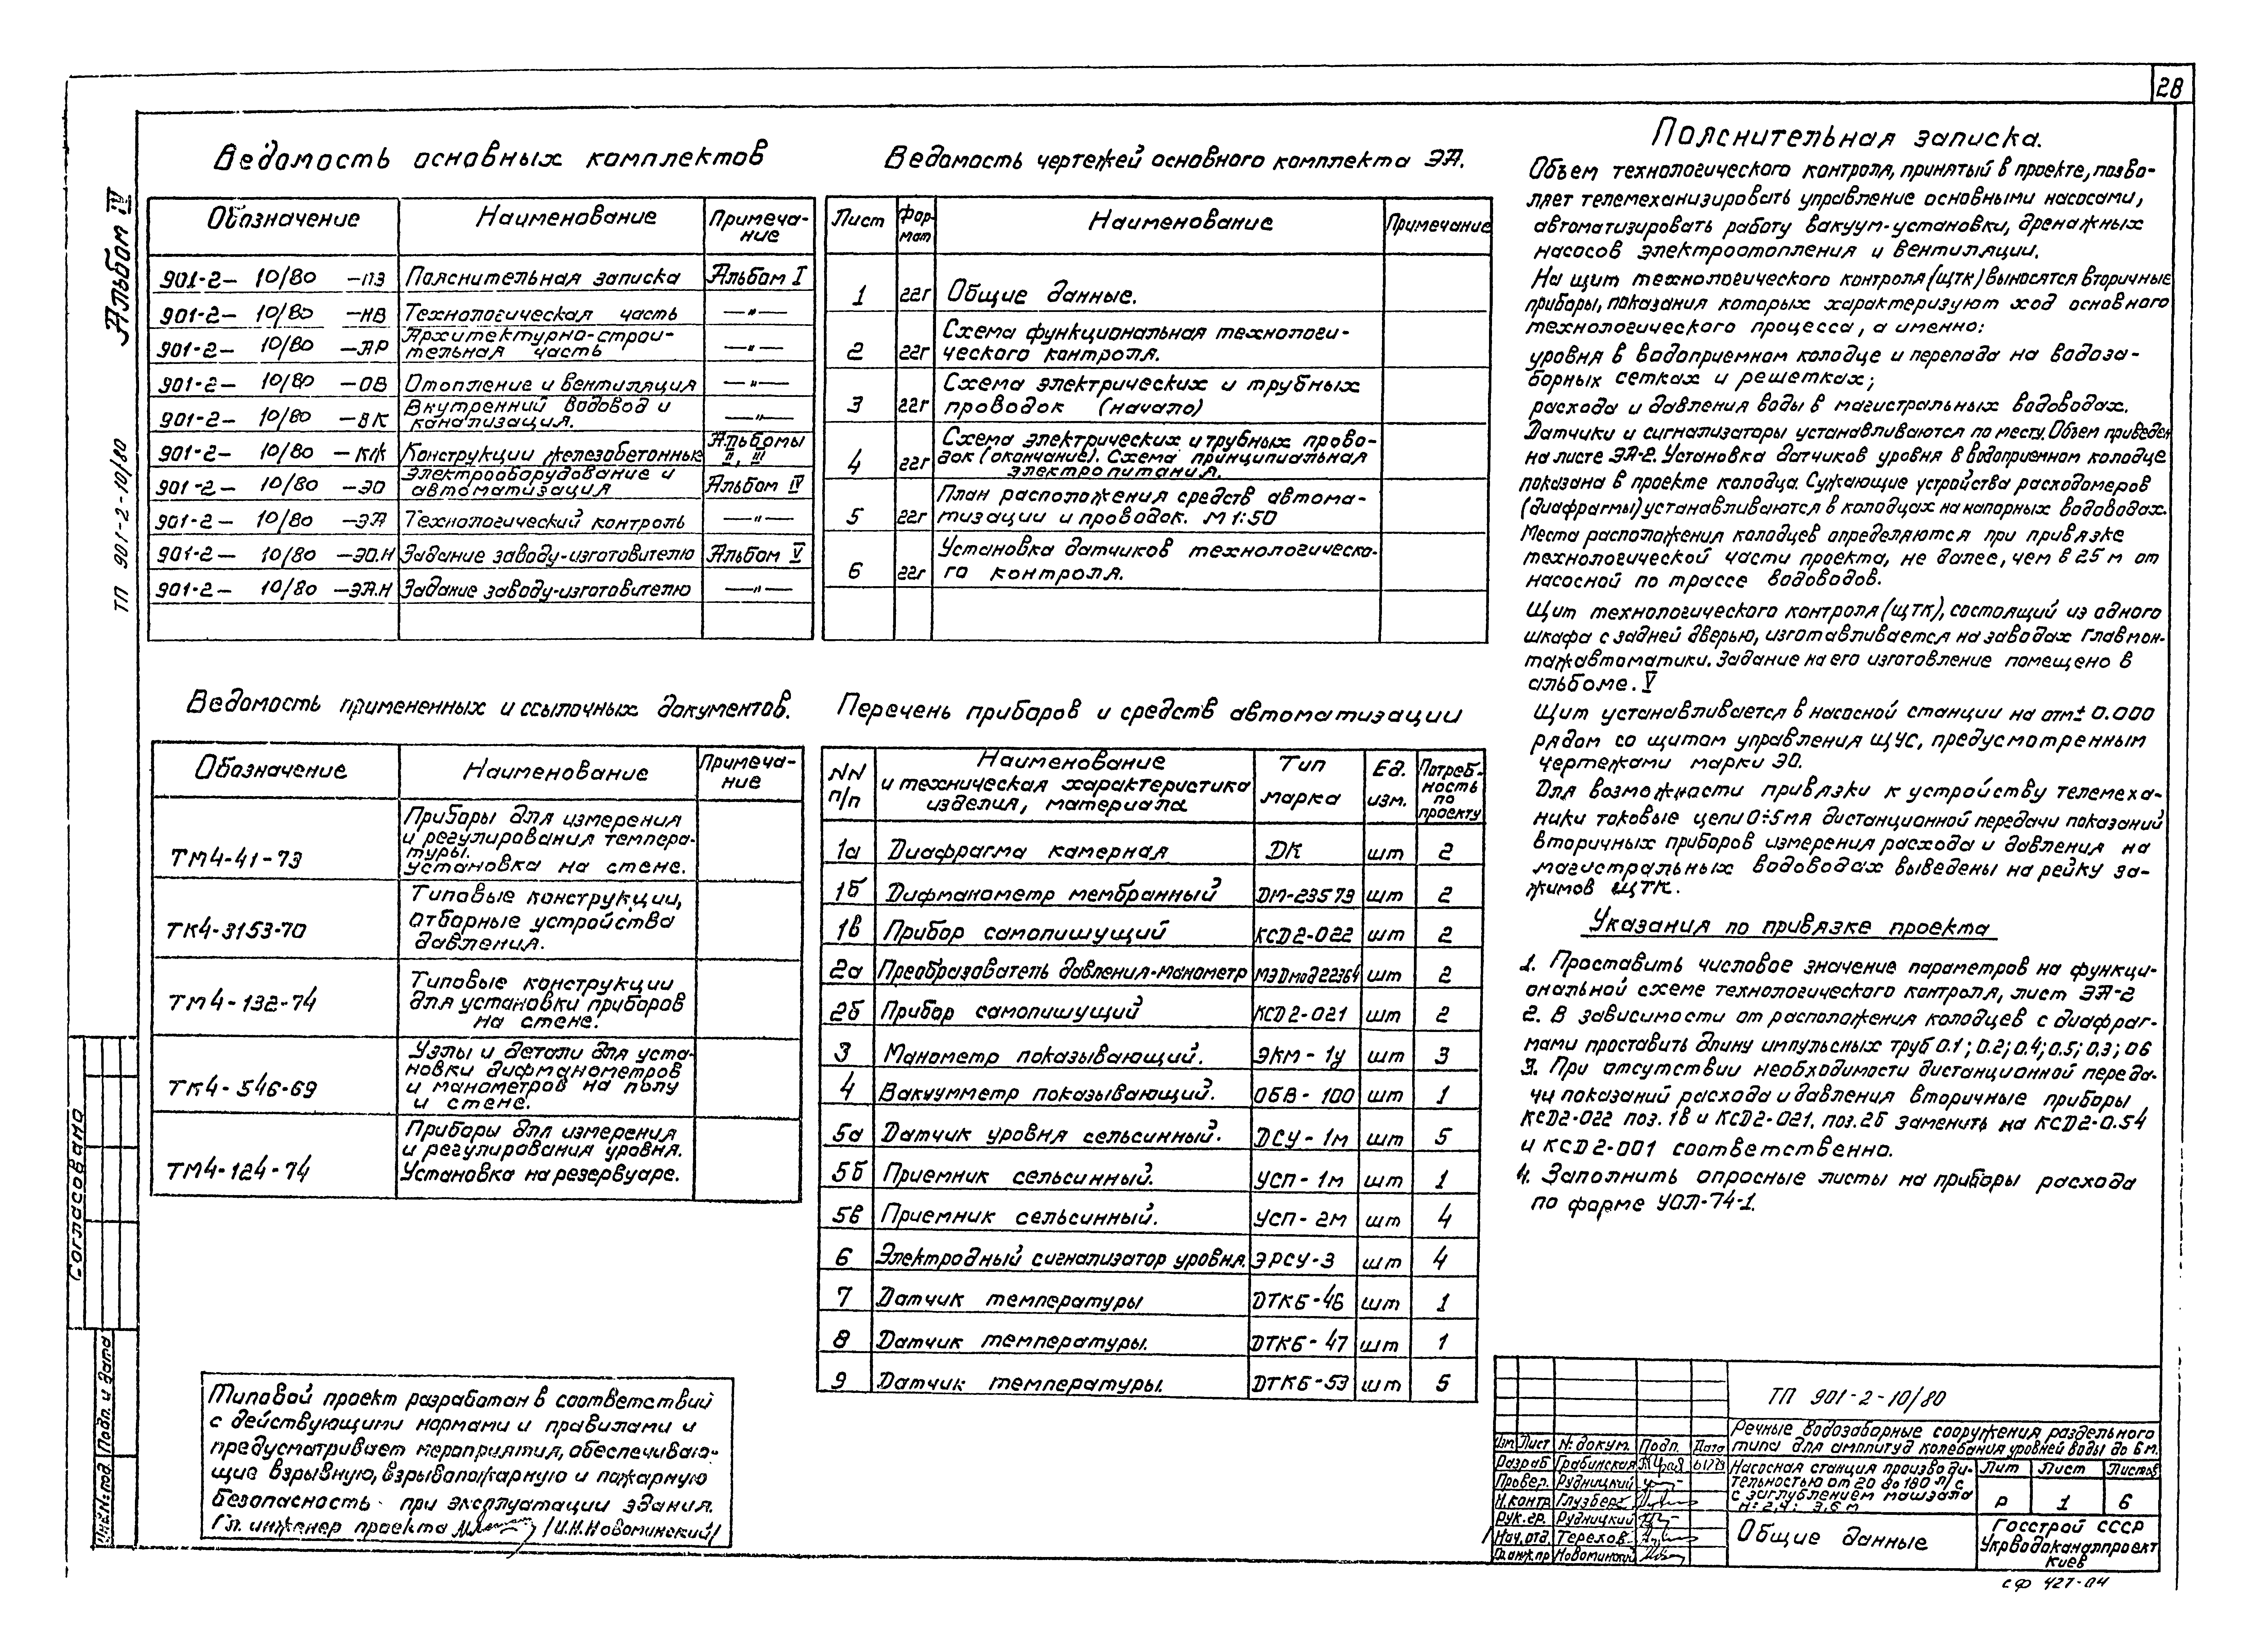 28
Альбом IV
ТП 901-2-10/80
Согласовано
Подп. и дата
Ведомость основных комплектов
Обозначение Наименование Примеча-
ние
901-2- 10/80 -ПЗ Пояснительная записка Альбом I
901-2- 10/80 -НВ Технологическая часть —"—
901-2- 10/80 -АР Архитектурно-строи-
тельная часть —"—
901-2- 10/80 -ОВ Отопление и вентиляция —"—
901-2- 10/80 -ВК Внутренний водовод и
канализация. —"—
901-2- 10/80 -КЖ Конструкции железобетонные Альбомы
II, III
901-2- 10/80 -ЭО Электрооборудование и
автоматизация Альбом IV
901-2- 10/80 -ЭА Технологический контроль —"—
901-2- 10/80 -ЭО.Н Задание заводу-изготовителю Альбом V
901-2- 10/80 -ЭА.Н Задание заводу-изготовителю —"—
Ведомость чертежей основного комплекта ЭА.
Лист Фор-
мат Наименование Примечание
1 22г Общие данные.
2 22г Схема функциональная технологи-
ческого контроля.
3 22г Схема электрических и трубных
проводок (начало)
4 22г Схема электрических и трубных прово-
док (окончание). Схема принципиальная
электропитания.
5 22г План расположения средств автома-
тизации и проводок. М 1:50
6 22г Установка датчиков технологическо-
го контроля.
Ведомость примененных и ссылочных документов.
Обозначение Наименование Примеча-
ние
ТМ4-41-73 Приборы для измерения
и регулирования темпера-
туры.
Установка на стене.
ТК4-3153-70 Типовые конструкции,
отборные устройства
давления.
ТМ4-132-74 Типовые конструкции
для установки приборов
на стене.
ТК4-546-69 Узлы и детали для уста-
новки дифманометров
и манометров на полу
и стене.
ТМ4-124-74 Приборы для измерения
и регулирования уровня.
Установка на резервуаре.
Перечень приборов и средств автоматизации
NN
п/п Наименование
и техническая характеристика
изделия, материала Тип
марка Ед.
изм. Потреб-
ность
по
проекту
1а Диафрагма камерная ДК шт 2
1б Дифманометр мембранный ДМ-23573 шт 2
1в Прибор самопишущий КСД2-022 шт 2
2а Преобразователь давления-манометр МЭДмод22364 шт 2
2б Прибор самопишущий КСД2-021 шт 2
3 Манометр показывающий. ЭКМ-1У шт 3
4 Вакуумметр показывающий. ОБВ-100 шт 1
5а Датчик уровня сельсинный. ДСУ-1м шт 5
5б Приемник сельсинный. УСП-1м шт 1
5в Приемник сельсинный. УСП-2м шт 4
6 Электродный сигнализатор уровня. ЭРСУ-3 шт 4
7 Датчик температуры ДТКБ-46 шт 1
8 Датчик температуры. ДТКБ-47 шт 1
9 Датчик температуры. ДТКБ-53 шт 5
Пояснительная записка.
Объем технологического контроля, принятый в проекте, позво-
ляет телемеханизировать управление основными насосами,
автоматизировать работу вакуум-установки, дренажных
насосов электроотопления и вентиляции.
На щит технологического контроля (щтк) выносятся вторичные
приборы, показания которых характеризуют ход основного
технологического процесса, а именно:
уровня в водоприемном колодце и перепада на водоза-
борных сетках и решетках;
расхода и давления воды в магистральных водоводах.
Датчики и сигнализаторы устанавливаются по месту. Объем приведен
на листе ЭА-2. Установка датчиков уровня в водоприемном колодце
показана в проекте колодца. Сужающие устройства расходомеров
(диафрагмы) устанавливаются в колодцах на напорных водоводах.
Места расположения колодцев определяются при привязке
технологической части проекта, не далее, чем в 25 м от
насосной по трассе водоводов.
Щит технологического контроля (щтк), состоящий из одного
шкафа с задней дверью, изготавливается на заводах Главмон-
тажавтоматики. Задание на его изготовление помещено в
альбоме. V
Щит устанавливается в насосной станции на отм ± 0.000
рядом со щитом управления ЩУС, предусмотренным
чертежами марки ЭО.
Для возможности привязки к устройству телемеха-
ники токовые цепи 0÷5мА дистанционной передачи показаний
вторичных приборов измерения расхода и давления на
магистральных водоводах выведены на рейку за-
жимов ЩТК.
Указания по привязке проекта
1. Проставить числовое значение параметров на функци-
ональной схеме технологического контроля, лист ЭА-2
2. В зависимости от расположения колодцев с диафраг-
мами проставить длину импульсных труб 0.1; 0.2; 0.4; 0.5; 0.3; 06
3. При отсутствии необходимости дистанционной переда-
чи показаний расхода и давления вторичные приборы
КСД2-022 поз. 1в и КСД2-021, поз. 2б заменить на КСД2-0.54
и КСД2-001 соответственно.
4. Заполнить опросные листы на приборы расхода
по форме УОЛ-74-1.
Типовой проект разработан в соответствий
с действующими нормами и правилами и
предусматривает мероприятия, обеспечиваю-
щие взрывную, взрывопожарную и пожарную
безопасность при эксплуатации здания.
Гл. инженер проекта /И.Н.Новоминский/
ТП 901-2-10/80
Речные водозаборные сооружения раздельного
типа для амплитуд колебания уровней воды до 6 м.
Изм Лист № докум. Подп. Дата
Разраб Грабинская
Провер. Рудницкий
Н.контр Глузберг
Рук.гр. Рудницкий
Нач.отд. Терехов
Гл.инж.пр Новоминский
Насосная станция производи-
тельностью от 20 до 180 л/с
с заглублением машзала
Н=2,4; 3,6 м
Лит Лист Листов
Р 1 6
Общие данные
Госстрой СССР
Укрводоканалпроект
Киев
сф 427-04